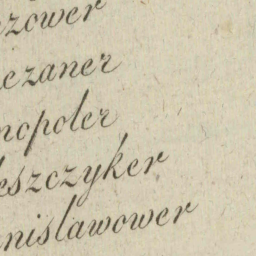 zower
ezaner
nopoler
leszczyker
anislawower